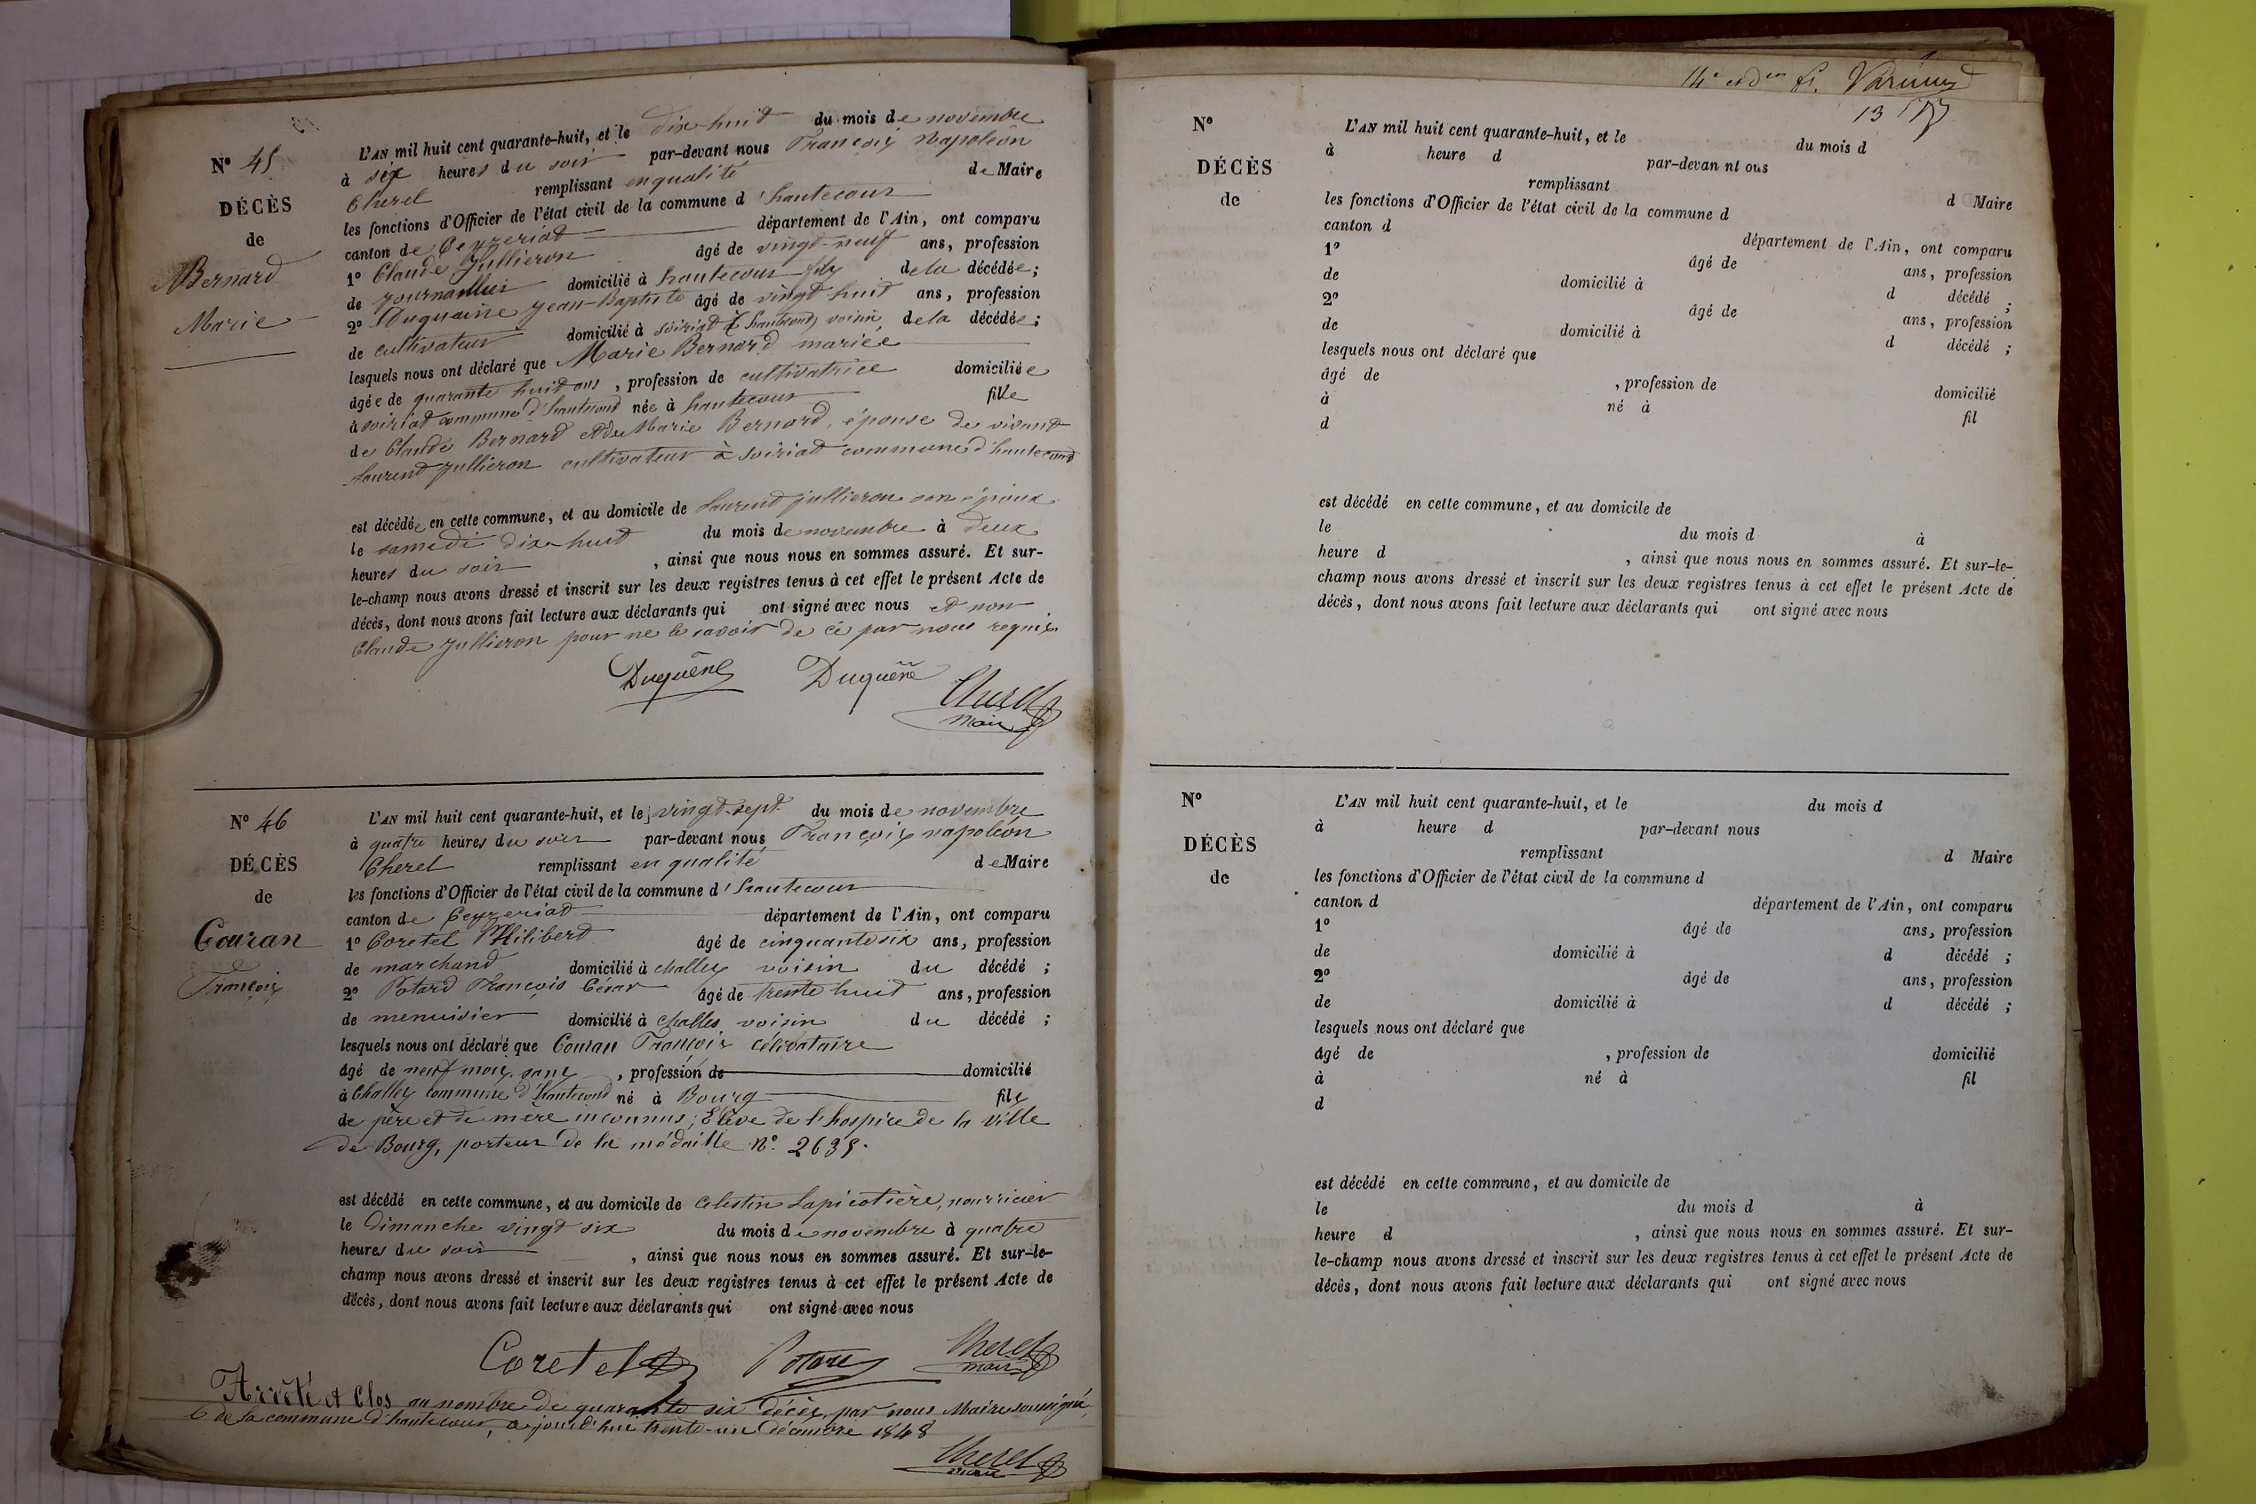 N° 45
DÉCÈS
de
Bernard
Marie
L'AN mil huit cent quarante-huit, et le dix-huit du mois de novembre
à six heures du soir par-devant nous François Napoléon
Cherel remplissant en qualité de Maire
les fonctions d'Officier de l'état civil de la commune d'hautecour
canton de Ceyzeriat département de l'Ain, ont comparu
1° Claude Jullieron âgé de vingt-neuf ans, profession
de journallier domicilié à hautecour fils de la décédée;
2° Duquaine jean-Baptiste âgé de vingt huit ans, profession
de cultivateur domicilié à soiriat voisin de la décédée;
lesquels nous ont déclaré que Marie Bernard mariée
âgée de quarante huit ans, profession de cultivatrice domiciliée
à soiriat commune d'hautecour née à hautecour fille
de Claude Bernard et de Marie Bernard, épouse de vivant
Laurent Jullieron cultivateur à soiriat commune d'hautecour
est décédée en cette commune, et au domicile de Laurent jullieron son époux
le samedi dix-huit du mois de novembre à deux
heures du soir, ainsi que nous nous en sommes assuré. Et sur-
le-champ nous avons dressé et inscrit sur les deux registres tenus à cet effet le présent Acte de
décès, dont nous avons fait lecture aux déclarants qui ont signé avec nous et non
Claude Jullieron pour ne le savoir de ce par nous requis.
Duquêne Duquêne Cherel
Maire
N° 46
DÉCÈS
de
Couran
François
L'AN mil huit cent quarante-huit, et le vingt-sept du mois de novembre
à quatre heures du soir par-devant nous François napoléon
Cherel remplissant en qualité de Maire
les fonctions d'Officier de l'état civil de la commune d'hautecour
canton de Ceyzeriat département de l'Ain, ont comparu
1° Coretel Philibert âgé de cinquante six ans, profession
de marchand domicilié à challes voisin du décédé;
2° Potard François César âgé de trente huit ans, profession
de menuisier domicilié à Challes voisin du décédé;
lesquels nous ont déclaré que Couran François célibataire
âgé de neuf mois, sans, profession de domicilié
à Challes commune d'hautecour né à Bourg fils
de père et de mère inconnus; Elève de l'hospice de la ville
de Bourg, porteur de la médaille N° 2635.
est décédé en cette commune, et au domicile de Celestin Lapicotière, nourricier
le dimanche vingt six du mois de novembre à quatre
heures du soir, ainsi que nous nous en sommes assuré. Et sur-le-
champ nous avons dressé et inscrit sur les deux registres tenus à cet effet le présent Acte de
décès, dont nous avons fait lecture aux déclarants qui ont signé avec nous
Coretel Potard Cherel
maire
Arrêté et Clos au nombre de quarante six décès, par nous Maire soussigné,
de la commune d'hautecour, ce jourd'hui trente-un Décembre 1848
Cherel
maire
14e et der f. Varimed
13
N°
DÉCÈS
de
L'AN mil huit cent quarante-huit, et le du mois d
à heure d par-devan nt ous
remplissant d Maire
les fonctions d'Officier de l'état civil de la commune d
canton d département de l'Ain, ont comparu
1° âgé de ans, profession
de domicilié à d décédé;
2° âgé de ans, profession
de domicilié à d décédé;
lesquels nous ont déclaré que
âgé de , profession de domicilié
à né à fil
d
est décédé en cette commune, et au domicile de
le du mois d à
heure d , ainsi que nous nous en sommes assuré. Et sur-le-
champ nous avons dressé et inscrit sur les deux registres tenus à cet effet le présent Acte de
décès, dont nous avons fait lecture aux déclarants qui ont signé avec nous
N°
DÉCÈS
de
L'AN mil huit cent quarante-huit, et le du mois d
à heure d par-devant nous
remplissant d Maire
les fonctions d'Officier de l'état civil de la commune d
canton d département de l'Ain, ont comparu
1° âgé de ans, profession
de domicilié à d décédé;
2° âgé de ans, profession
de domicilié à d décédé;
lesquels nous ont déclaré que
âgé de , profession de domicilié
à né à fil
d
est décédé en cette commune, et au domicile de
le du mois d à
heure d , ainsi que nous nous en sommes assuré. Et sur-
le-champ nous avons dressé et inscrit sur les deux registres tenus à cet effet le présent Acte de
décès, dont nous avons fait lecture aux déclarants qui ont signé avec nous